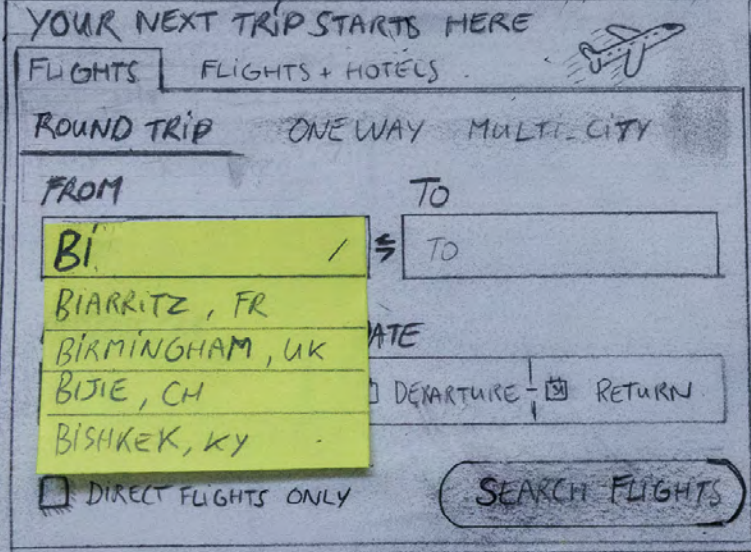 YOUR NEXT TRIP STARTS HERE
FLIGHTS FLIGHTS + HOTELS
ROUND TRIP ONE WAY MULTI-CITY
FROM TO
BI TO
BIARRITZ, FR
BIRMINGHAM, UK
ATE
BIJIE, CH
DEPARTURE RETURN
BISHKEK, KY
DIRECT FLIGHTS ONLY SEARCH FLIGHTS